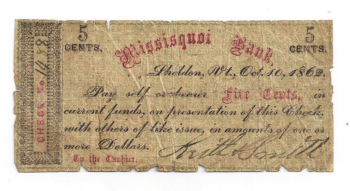 5 Missisquoi Bank, 5
CENTS. CENTS.
Sheldon, Vt., Oct. 10, 1862.
Pay self or bearer Five Cents, in
current funds, on presentation of this Check,
with others of like issue, in amounts of one or
more Dollars.
To the Cashier.
CHECK No.